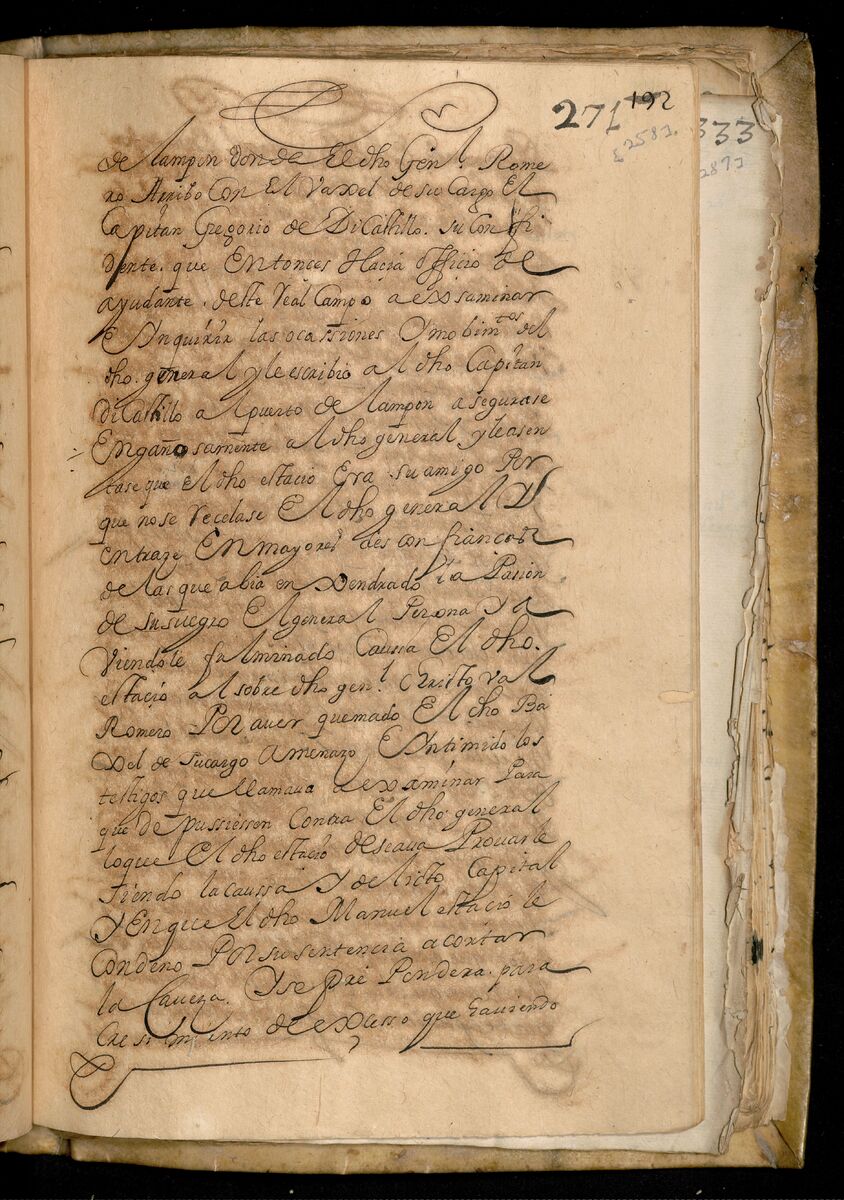 271 192
£2581
333
2877
de lampon don de El dho Genl. Rome
ro Arribo Con El Vaxel de su Cargo El
Capitan Gregorio de DiCastillo. su Confi
dente. que Entonces Hacia officio de
ayudante. deste Real Campo a exsaminar
E Ynquirir las ocassiones Y mobimtos del
dho. general y le escribio al dho Capitan
DiCastillo al puerto de lampon asegurase
Engañosamente al dho general, y le asen
tase que el dho estacio Era su amigo Por
que no se recelase El dho general Y
entraze En mayores desconfiancas
de las que abia enxendrado la Pasion
de su suegro El general Perona Y a
viendole fulminado Caussa El dho.
estacio al sobre dho genl. Christoval
Romero Por aver quemado El dho Ba
xel de su cargo Amenazo, E Yntimido los
testigos que llamava a examinar Para
que depussiessen Contra El dho general
lo que El dho estacio deseava Provarle
siendo la caussa Y delicto Capital
Y En que El dho Manuel estacio le
Condeno Por su sentencia a cortar
la Caveza. Y se pre Pendera para
Cresimiento de exsesso que haviendo